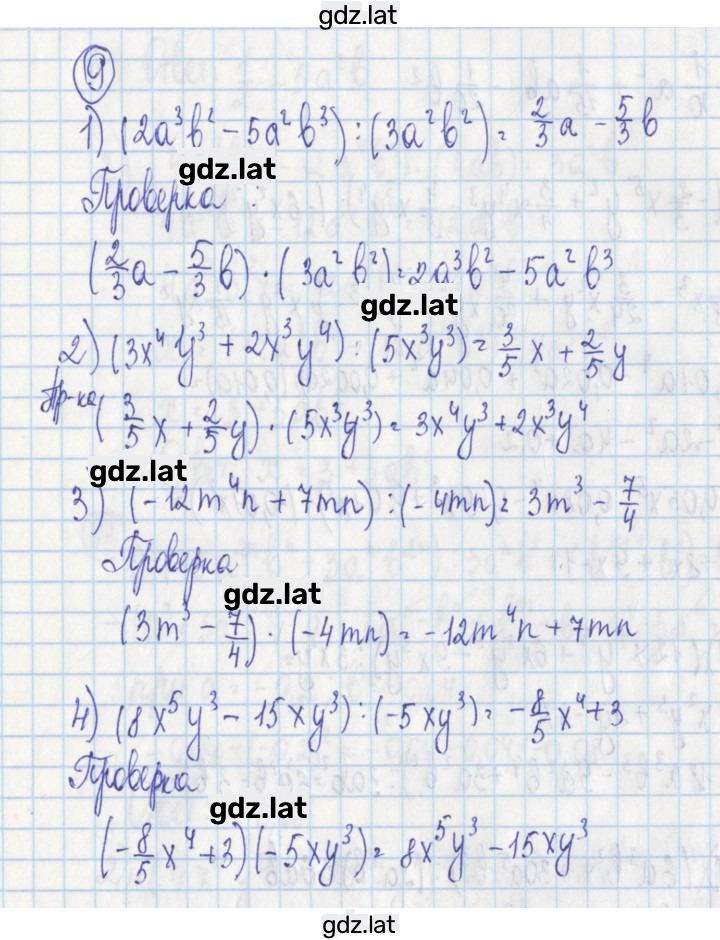 gdz.lat
9
1) (2a³b² - 5a²b³) : (3a²b²) = 2/3 a - 5/3 b
gdz.lat
Проверка :
(2/3 a - 5/3 b) · (3a²b²) = 2a³b² - 5a²b³
gdz.lat
2) (3x⁴y³ + 2x³y⁴) : (5x³y³) = 3/5 x + 2/5 y
Пр-ка (3/5 x + 2/5 y) · (5x³y³) = 3x⁴y³ + 2x³y⁴
gdz.lat
3) (-12m⁴n + 7mn) : (-4mn) = 3m³ - 7/4
Проверка
gdz.lat
(3m³ - 7/4) · (-4mn) = -12m⁴n + 7mn
4) (8x⁵y³ - 15xy³) : (-5xy³) = -8/5 x⁴ + 3
Проверка
gdz.lat
(-8/5 x⁴ + 3) (-5xy³) = 8x⁵y³ - 15xy³
gdz.lat